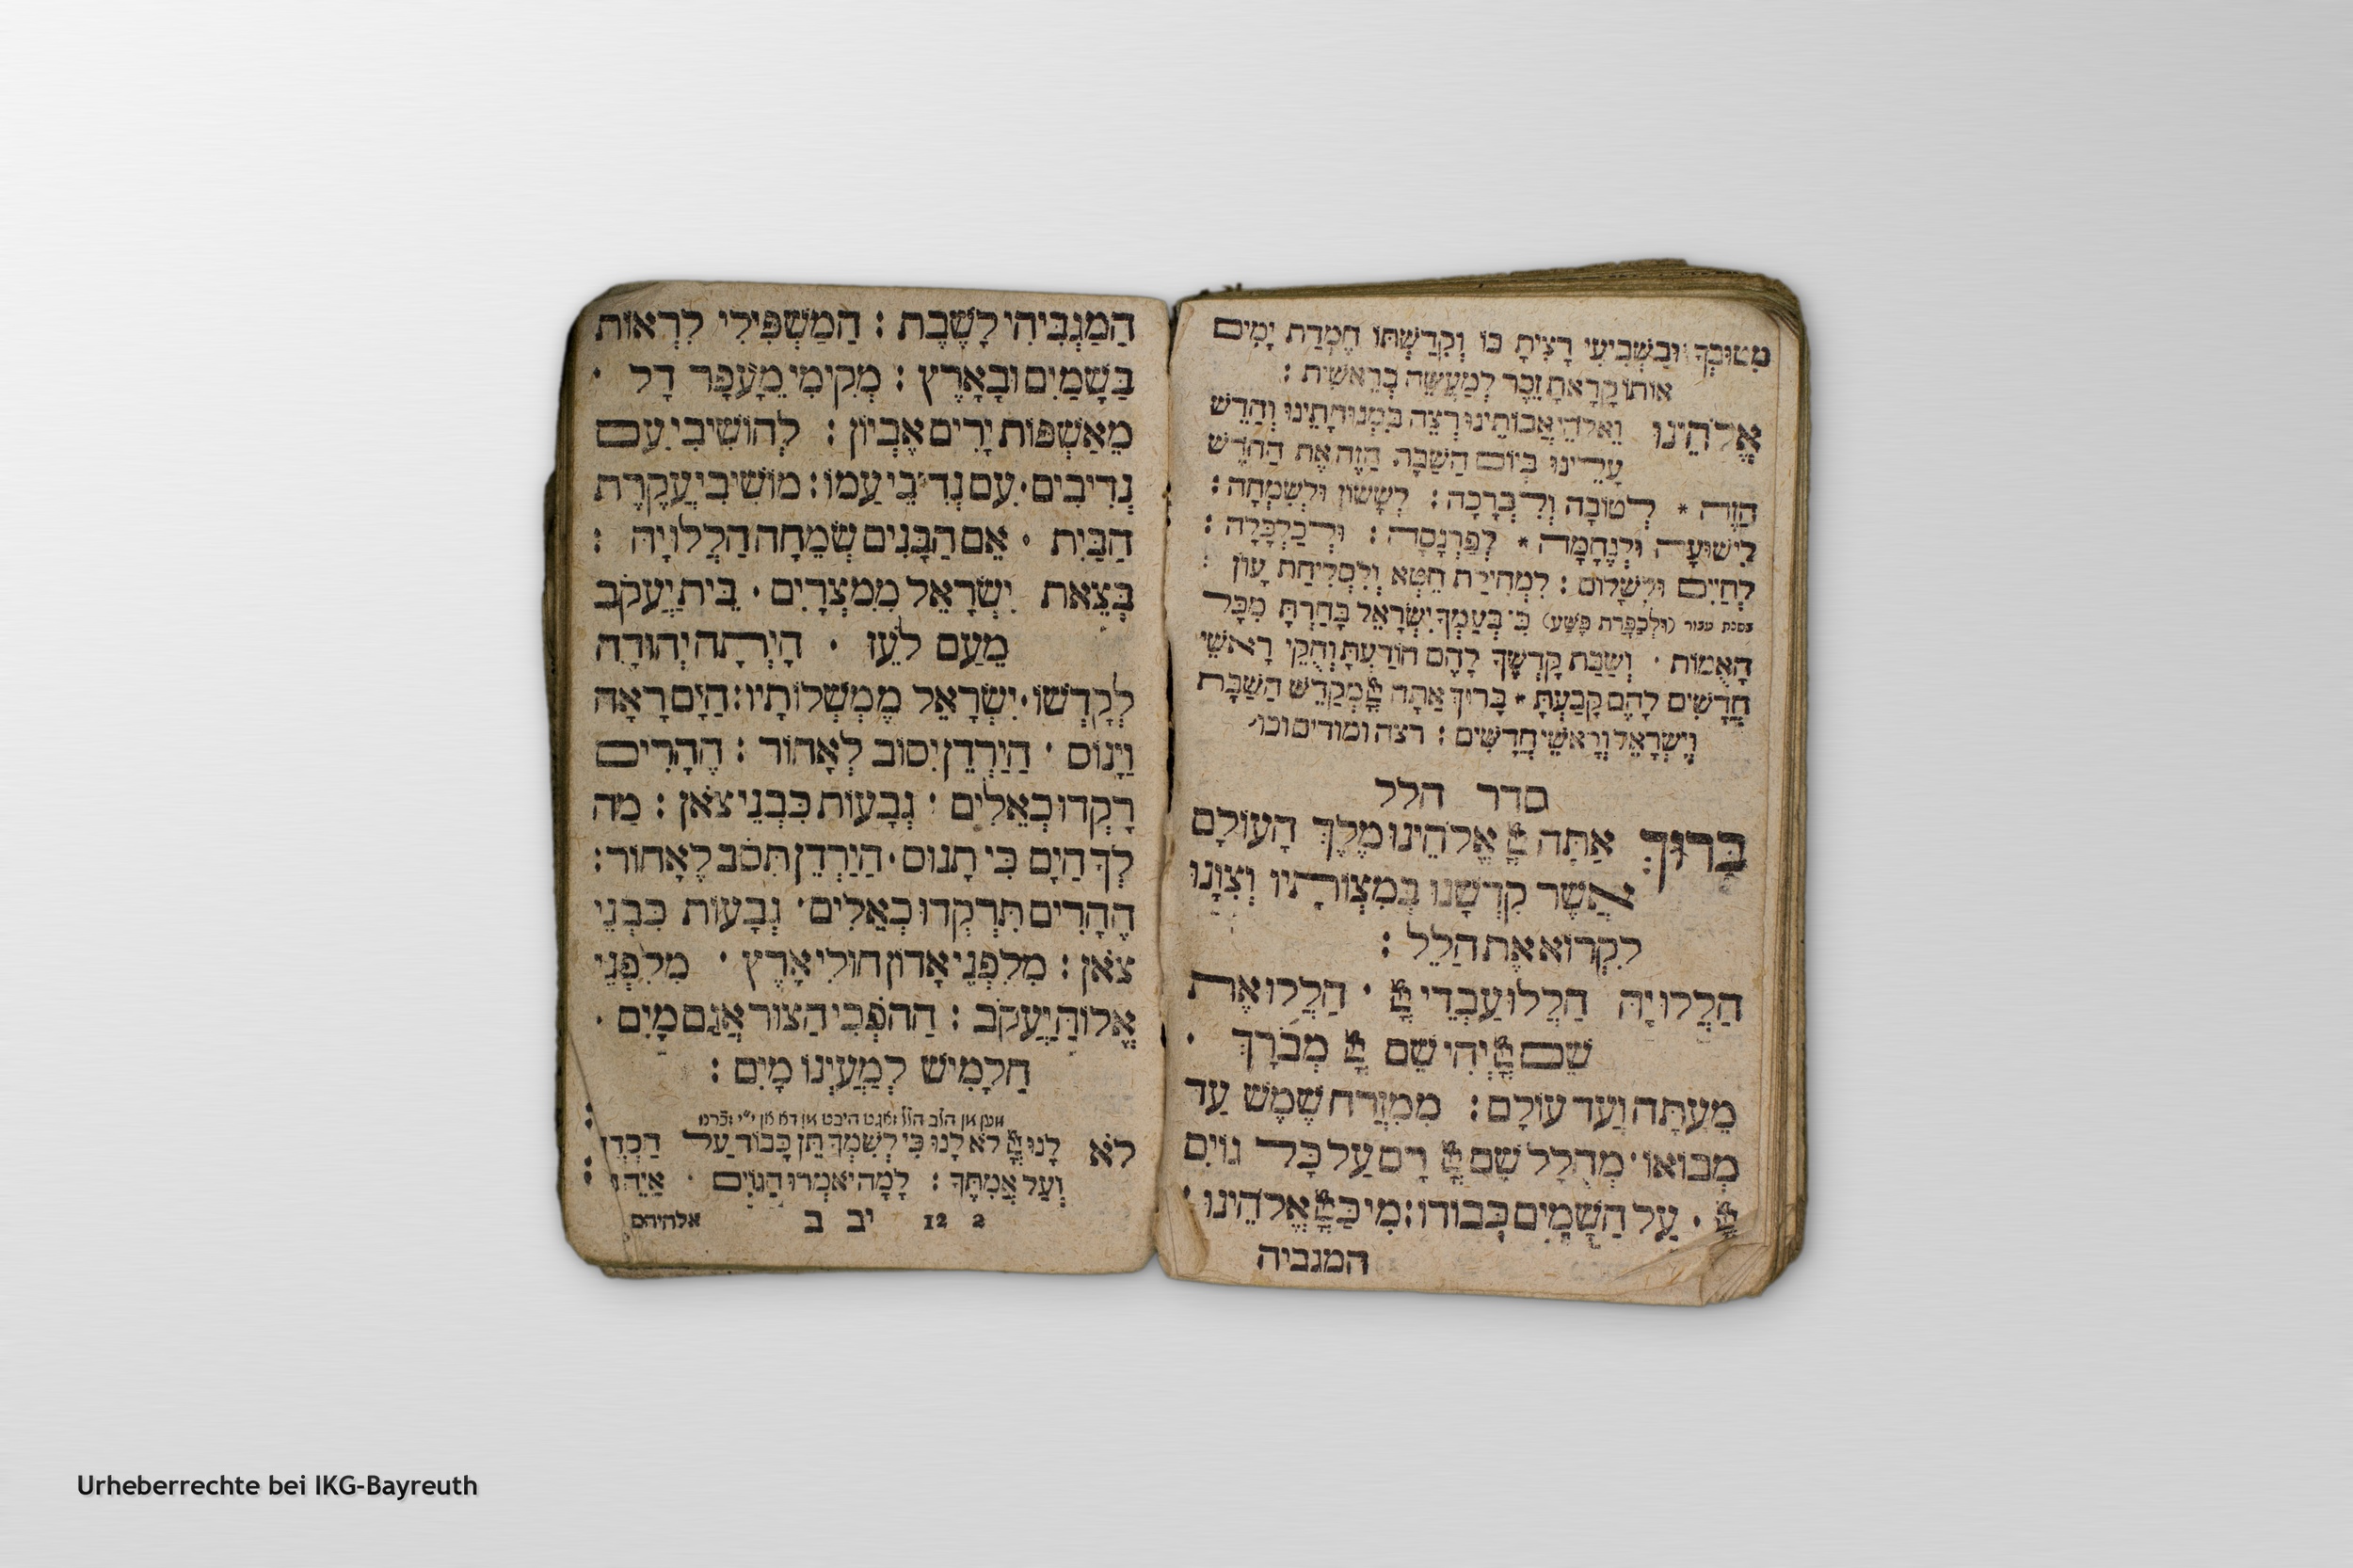 מִטוּבְךָ וּבַשְׁבִיעִי רָצִיתָ בּוֹ וְקִדַּשְׁתּוֹ חֶמְדַת יָמִים
אוֹתוֹ קָרָאתָ זֵכֶר לְמַעֲשֵׂה בְרֵאשִׁית :
אֱלֹהֵינוּ וֵאלֹהֵי אֲבוֹתֵינוּ רְצֵה בִּמְנוּחָתֵינוּ וְחַדֵּשׁ
עָלֵינוּ בְּיוֹם הַשַּׁבָּת הַזֶּה אֶת הַחֹדֶשׁ
הַזֶּה * לְטוֹבָה וְלִבְרָכָה : לְשָׂשׂוֹן וּלְשִׂמְחָה :
לִישׁוּעָה וּלְנֶחָמָה * לְפַרְנָסָה : וּלְכַלְכָּלָה :
לְחַיִּים וּלְשָׁלוֹם : לִמְחִילַת חֵטְא וְלִסְלִיחַת עָוֹן :
בשנת עבור (וּלְכַפָּרַת פֶּשַׁע) כִּי בְעַמְּךָ יִשְׂרָאֵל בָּחַרְתָּ מִכָּל
הָאֻמוֹת · וְשַׁבַּת קָדְשְׁךָ לָהֶם הוֹדַעְתָּ וְחֻקֵּי רָאשֵׁי
חֳדָשִׁים לָהֶם קָבַעְתָּ * בָּרוּךְ אַתָּה יְיָ מְקַדֵּשׁ הַשַּׁבָּת
וְיִשְׂרָאֵל וְרָאשֵׁי חֳדָשִׁים : רצה ומודים וכו'
סדר הלל
בָּרוּךְ אַתָּה יְיָ אֱלֹהֵינוּ מֶלֶךְ הָעוֹלָם
אֲשֶׁר קִדְּשָׁנוּ בְּמִצְוֹתָיו וְצִוָּנוּ
לִקְרוֹא אֶת הַלֵּל :
הַלֲלוּיָהּ הַלֲלוּ עַבְדֵי יְיָ · הַלֲלוּ אֶת
שֵׁם יְיָ יְהִי שֵׁם יְיָ מְבֹרָךְ ·
מֵעַתָּה וְעַד עוֹלָם : מִמִּזְרַח שֶׁמֶשׁ עַד
מְבוֹאוֹ · מְהֻלָּל שֵׁם יְיָ רָם עַל כָּל גּוֹיִם
יְיָ · עַל הַשָּׁמַיִם כְּבוֹדוֹ : מִי כַּיְיָ אֱלֹהֵינוּ ·
המגביה
הַמַּגְבִּיהִי לָשָׁבֶת : הַמַּשְׁפִּילִי לִרְאוֹת
בַּשָּׁמַיִם וּבָאָרֶץ : מְקִימִי מֵעָפָר דָל ·
מֵאַשְׁפּוֹת יָרִים אֶבְיוֹן : לְהוֹשִׁיבִי עִם
נְדִיבִים · עִם נְדִיבֵי עַמּוֹ : מוֹשִׁיבִי עֲקֶרֶת
הַבַּיִת · אֵם הַבָּנִים שְׂמֵחָה הַלֲלוּיָהּ :
בְּצֵאת יִשְׂרָאֵל מִמִּצְרָיִם · בֵּית יַעֲקֹב
מֵעַם לֹעֵז · הָיְתָה יְהוּדָה
לְקָדְשׁוֹ · יִשְׂרָאֵל מַמְשְׁלוֹתָיו : הַיָּם רָאָה
וַיָּנוֹס · הַיַּרְדֵּן יִסוֹב לְאָחוֹר : הֶהָרִים
רָקְדוּ כְאֵלִים · גְּבָעוֹת כִּבְנֵי צֹאן : מַה
לְךָ הַיָּם כִּי תָנוּס · הַיַּרְדֵּן תִּסֹּב לְאָחוֹר :
הֶהָרִים תִּרְקְדוּ כְאֵלִים · גְּבָעוֹת כִּבְנֵי
צֹאן : מִלִּפְנֵי אָדוֹן חוּלִי אָרֶץ · מִלִּפְנֵי
אֱלוֹהַּ יַעֲקֹב : הַהֹפְכִי הַצּוּר אֲגַם מָיִם ·
חַלָּמִישׁ לְמַעְיְנוֹ מָיִם :
לֹא לָנוּ יְיָ לֹא לָנוּ כִּי לְשִׁמְךָ תֵּן כָּבוֹד עַל חַסְדְּךָ
וְעַל אֲמִתֶּךָ : לָמָּה יֹאמְרוּ הַגּוֹיִם · אַיֵּה נָא
12 2 יב ב אלהיהם
Urheberrechte bei IKG-Bayreuth